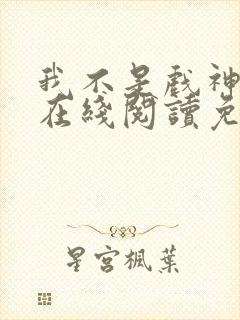 我不是戲神
在綫閱讀免
星宮楓葉